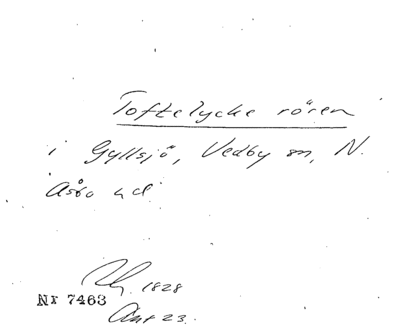 Toftelycke rören
i Gyllsjö, Vedby sn, N.
Åsbo hd.
1828
Nr 7463
23.